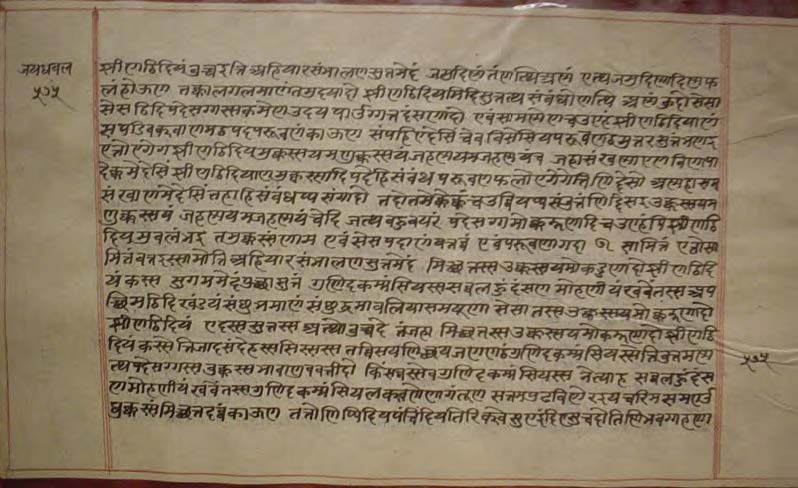 जयधवल
५७५
झीणट्ठिदियं वुच्चइ त्ति अहियारसंभालणसुत्तमेदं जमुदिण्णं तं णत्थि अण्णं एत्थ जमुदिण्णं दिण्णफ
लं होऊण तक्कालगलमाणं तमुदयादो झीणट्ठिदियमिदि सुत्तत्थसंबंधो णत्थि अण्णं कुदो सेसा
सेसट्ठिदिपदेसग्गस्स कमेण उदयपाओग्गत्तदंसणादो एवं सामण्णेण चउण्हं झीणट्ठिदियाणं
सपडिवक्खाणमट्ठपदपरूवणं काऊण संपहि एदेसिं चेव विसेसियपरूवणट्ठमुत्तरसुत्तं भणइ
एत्तो एगेगझीणट्ठिदियमुक्कस्सयमणुक्कस्सयं जहण्णयमजहण्णयं च जहासंखणाएण विणा
देक्कमेदेसिं झीणट्ठिदियाणमुक्कस्सादिपदेहि संबंधपरूवणफलो एगेगेत्ति णिद्देसो अण्णहा सम
संखाणमेदेसिं तहाहिसंबंधप्पसंगादो तदो चउव्वियप्पसंजुत्तमिदि उक्कस्सयम
णुक्कस्सयं जहण्णयमजहण्णयं चेदि जत्थ बहुवयरं पदेसग्गमोकड्डणादिचउण्हं पि झीणट्ठि
दियमुवलंभइ तमुक्कस्सं णाम एवं सेसपदाणं वत्तव्वं एवं परूवणा गदा ७ सामित्तं एत्तो सा
मित्तं वत्तइस्सामो त्ति अहियारसंभालणसुत्तमेदं मिच्छत्तस्स उक्कस्सयमोकड्डणादो झीणट्ठिदि
यं कस्स सुगममेदं पुच्छासुत्तं गुणिदकम्मंसियस्स सव्वलहुं दंसणमोहणीयं खवेंतस्स अप
च्छिमट्ठिदिखंडयं संछुब्भमाणं संछुद्धमावलिया समयूणा सेसा तस्स उक्कस्सयमोकड्डणादो
झीणट्ठिदियं एदस्स सुत्तस्स अत्थो वुच्चदे तं जहा मिच्छत्तस्स उक्कस्सयमोकड्डणादो झीणट्ठि
दियं कस्स त्ति जादसंदेहस्स सिस्सस्स तव्विसयणिच्छयजणणट्ठं गुणिदकम्मंसियस्स त्ति वुत्तमण्ण
त्थ पदेसग्गस्स उक्कस्सभावाणुववत्तीदो किं सव्वस्सेव गुणिदकम्मंसियस्स नेत्याह सव्वलहुं दंस
णमोहणीयं खवेंतस्स गुणिदकम्मंसियलक्खणेणागंतूण सत्तमपुढविणेरइयचरिमसमए ओ
घुक्कस्सं मिच्छत्तदव्वं काऊण तत्तो णिप्पिडिय पंचिंदियतिरिक्खेसु एइंदिएसु च दोतिण्णिभवग्गहण
५७५